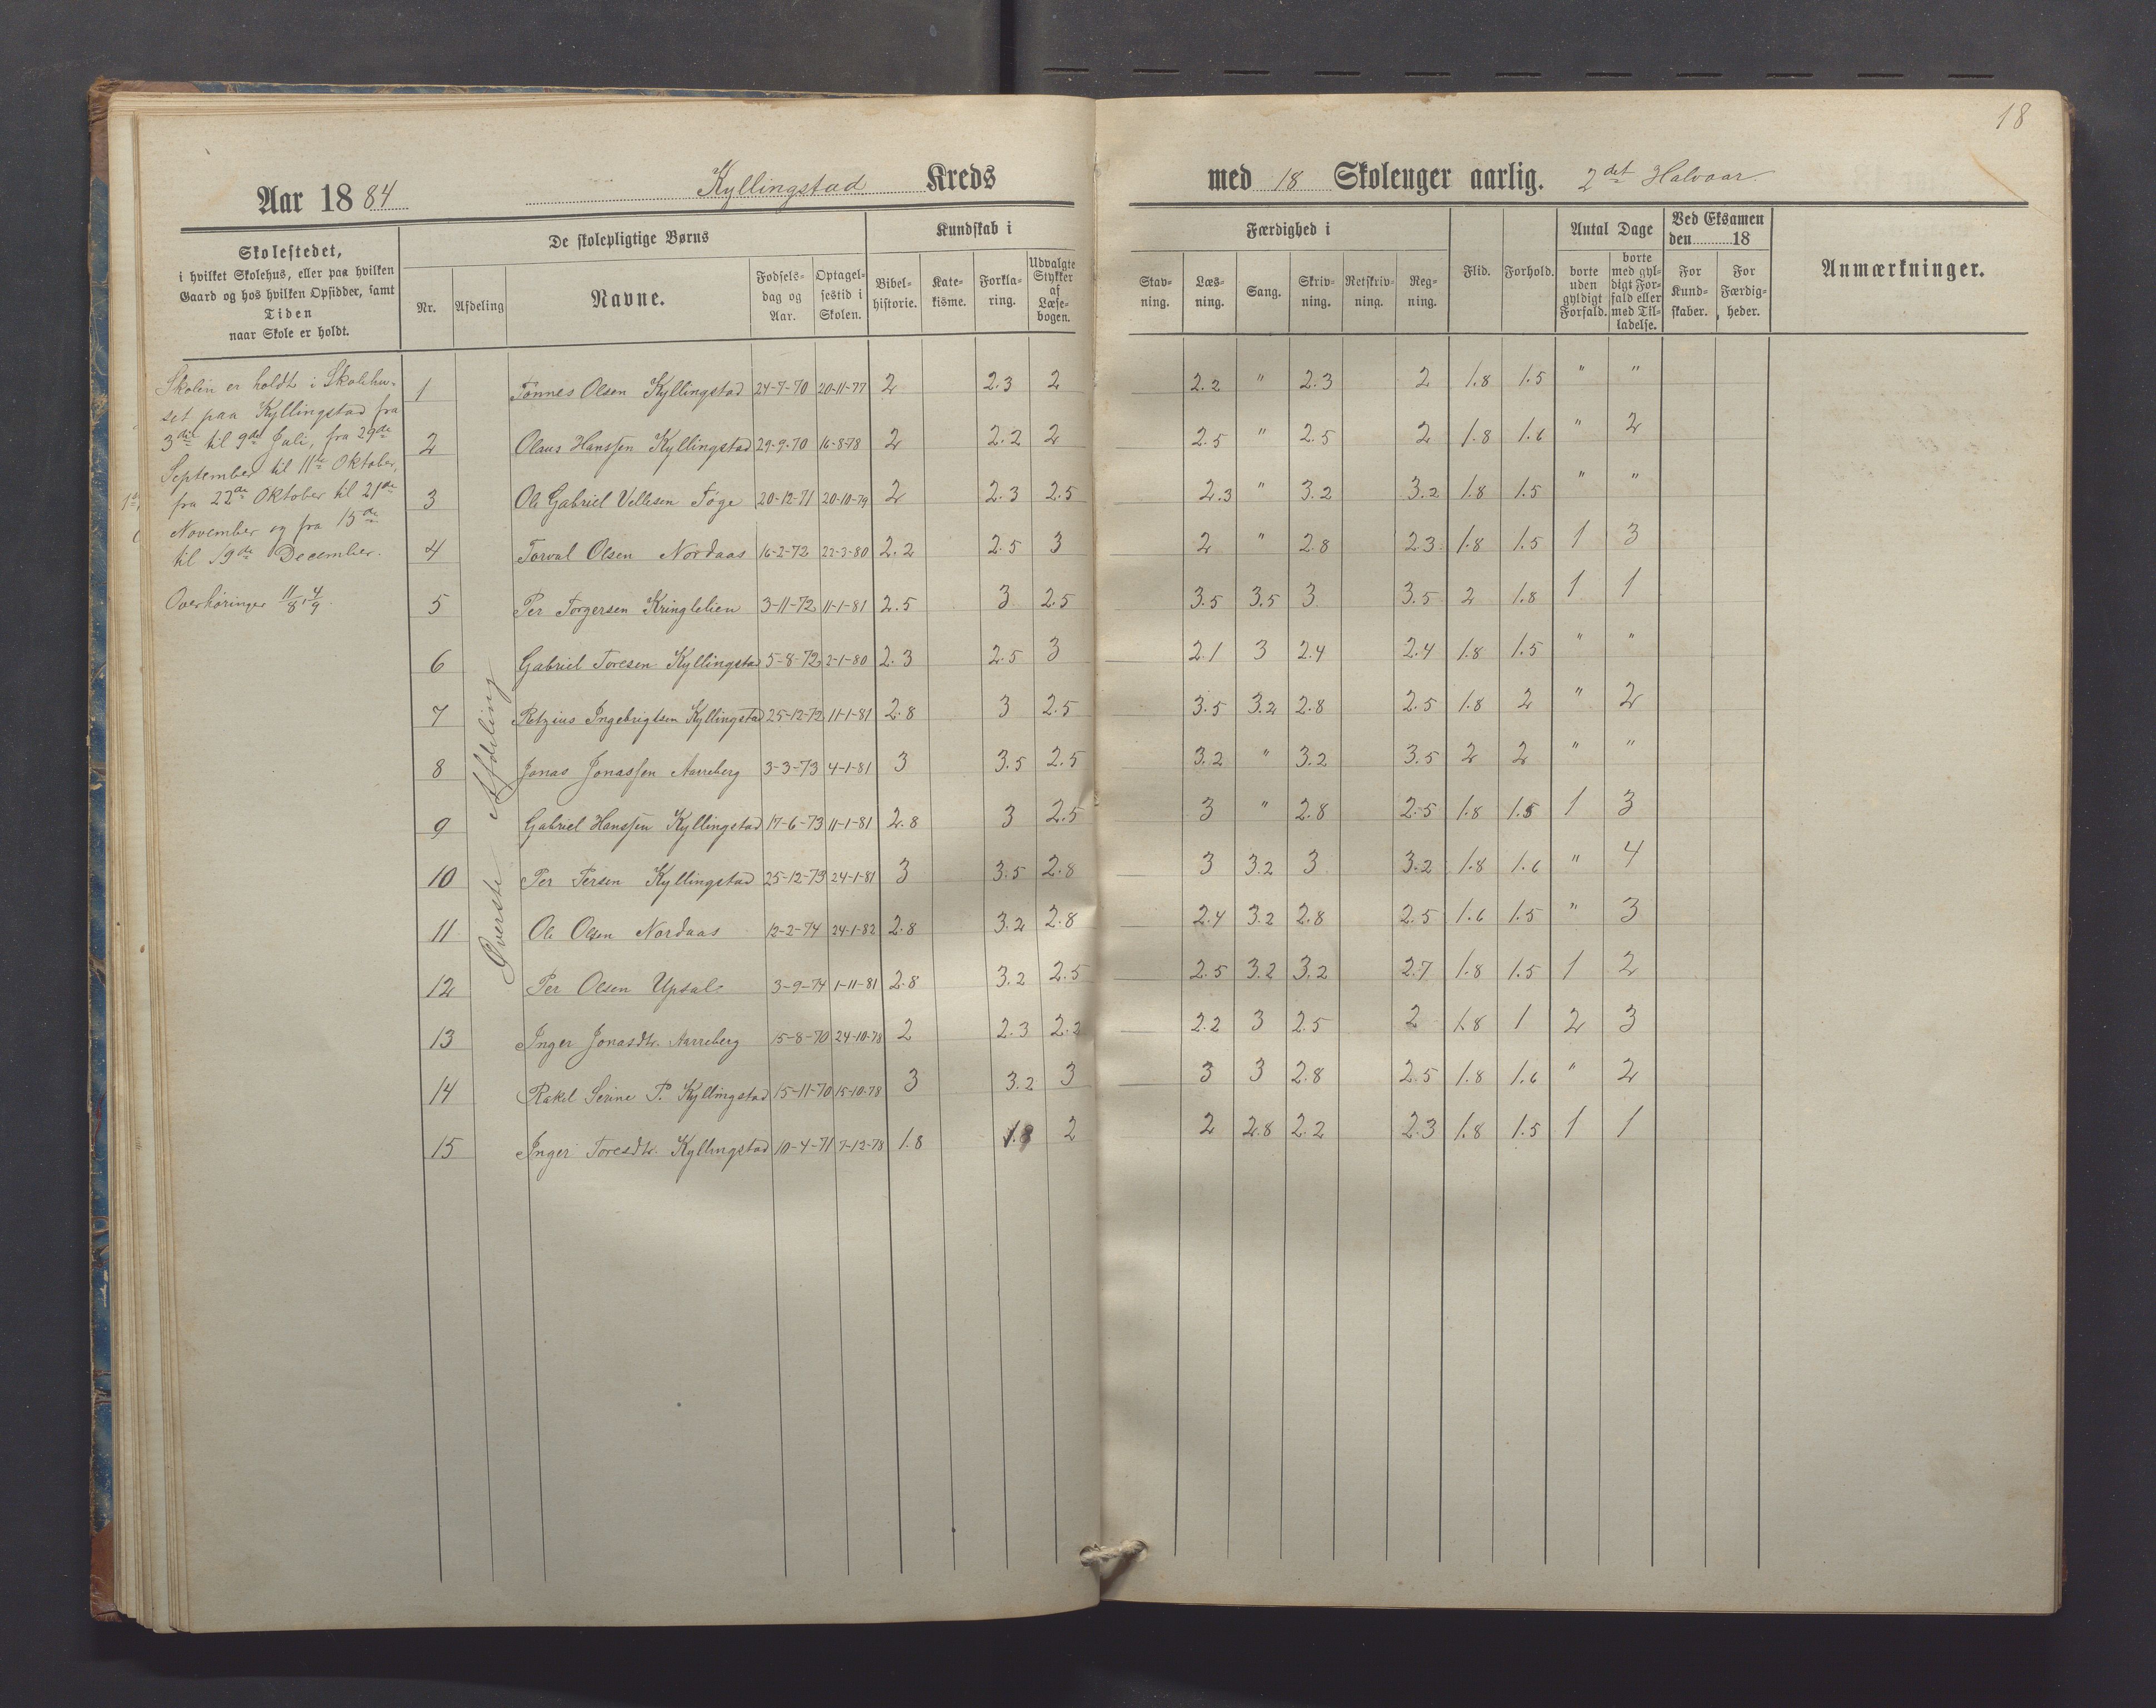 18
Aar 1884 Kyllingstad Kreds med 18 Skoleuger aarlig. 2det Halvaar.
Skolestedet,
i hvilket Skolehus, eller paa hvilken
Gaard og hos hvilken Opsidder, samt
Tiden
naar Skole er holdt.
De skolepligtige Børns
Nr. Afdeling Navne. Fødsels-dag og Aar. Optagel-sestid i Skolen.
Kundskab i
Bibel-historie. Kate-kisme. Forkla-ring. Udvalgte Stykker af Læse-bogen.
Færdighed i
Stav-ning. Læs-ning. Sang. Skriv-ning. Retskriv-ning. Reg-ning.
Flid. Forhold.
Antal Dage
borte uden gyldigt Forfald. borte med gyl-digt For-fald eller med Til-ladelse.
Ved Eksamen
den 18
For Kund-skaber. For Færdig-heder.
Anmærkninger.
Skolen er holdt i Skolehu-
set paa Kyllingstad fra
3die til 9de Juli, fra 29de
September til 11te Oktober,
fra 22de Oktober til 21de
November og fra 15de
til 19de December.
Overhøringer 11/8, 4/9.
Øverste Afdeling
1 Tønnes Olsen Kyllingstad 24-7-70 20-11-77 2 2.3 2 2.2 " 2.3 2 1.8 1.5 " "
2 Olaus Hanssen Kyllingstad 29-9-70 16-8-78 2 2.2 2 2.5 " 2.5 2 1.8 1.6 " 2
3 Ole Gabriel Vellesen Tøge 20-12-71 20-10-79 2 2.3 2.5 2.3 " 3.2 3.2 1.8 1.5 " "
4 Torval Olsen Nordaas 16-2-72 22-3-80 2.2 2.5 3 2 " 2.8 2.3 1.8 1.5 1 3
5 Per Torgersen Kringlelien 3-11-72 11-1-81 2.5 3 2.5 3.5 3.5 3 3.5 2 1.8 1 1
6 Gabriel Toresen Kyllingstad 5-8-72 2-1-80 2.3 2.5 3 2.1 3 2.4 2.4 1.8 1.5 " "
7 Retzius Ingebrigtsen Kyllingstad 25-12-72 11-1-81 2.8 3 2.5 3.5 3.2 2.8 2.5 1.8 2 " 2
8 Jonas Jonassen Aarreberg 3-3-73 4-1-81 3 3.5 2.5 3.2 " 3.2 3.5 2 2 " "
9 Gabriel Hanssen Kyllingstad 17-6-73 11-1-81 2.8 3 2.5 3 " 2.8 2.5 1.8 1.5 1 3
10 Per Persen Kyllingstad 25-12-73 24-1-81 3 3.5 2.8 3 3.2 3 3.2 1.8 1.6 " 4
11 Ole Olsen Nordaas 12-2-74 24-1-82 2.8 3.2 2.8 2.4 3.2 2.8 2.5 1.6 1.5 " 3
12 Per Olsen Upsal 3-9-74 1-11-81 2.8 3.2 2.5 2.5 3.2 3.2 2.7 1.8 1.5 1 2
13 Inger Jonasdtr. Aarreberg 15-8-70 24-10-78 2 2.3 2.2 2.2 3 2.5 2 1.8 1 2 3
14 Rakel Serine P. Kyllingstad 15-11-70 15-10-78 3 3.2 3 3 3 2.8 2.5 1.8 1.6 " 2
15 Inger Toresdtr. Kyllingstad 10-4-71 7-12-78 1.8 1.8 2 2 2.8 2.2 2.3 1.8 1.5 1 1